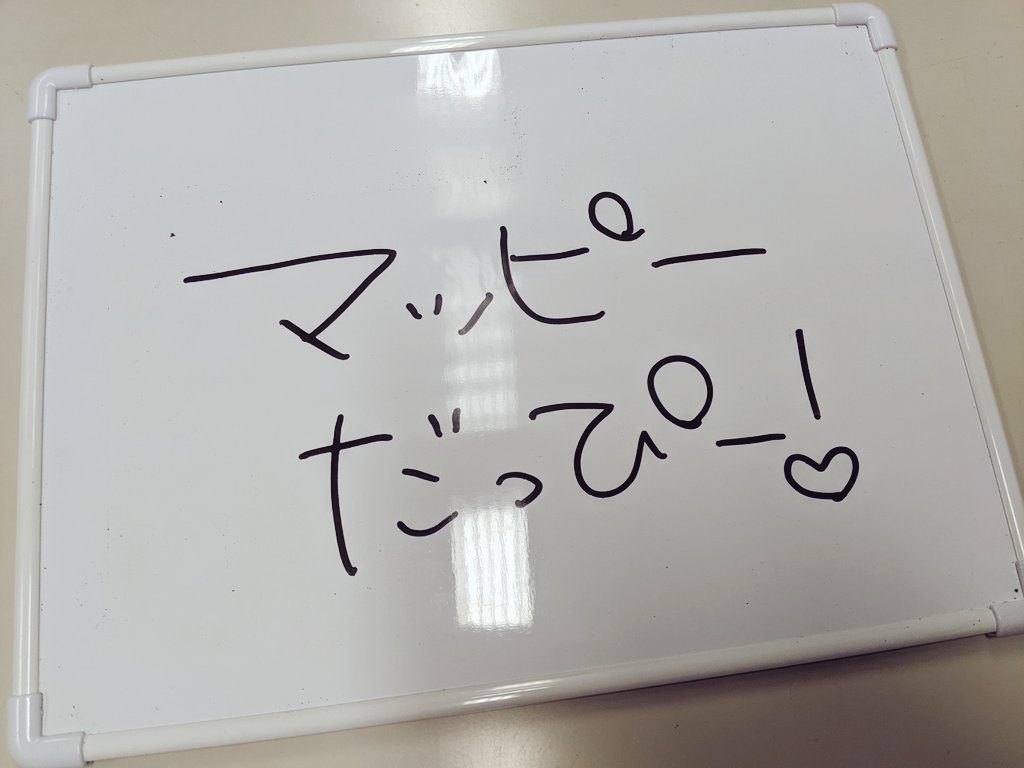 マッピー
だっぴー!♡